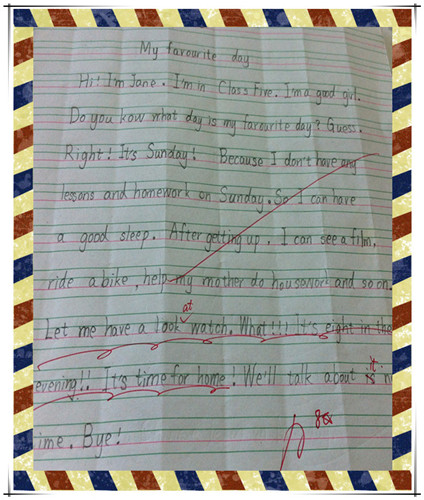 My favourite day
Hi! I'm Jane. I'm in Class Five. I'm a good girl.
Do you kow what day is my favourite day? Guess.
Right! It's Sunday! Because I don't have any
lessons and homework on Sunday. So I can have
a good sleep. After getting up. I can see a film,
ride a bike, help my mother do housework and so on.
at
Let me have a look watch. What!!! It's eight in the
evening!! It's time for home! We'll talk acout
it
ime. Bye!